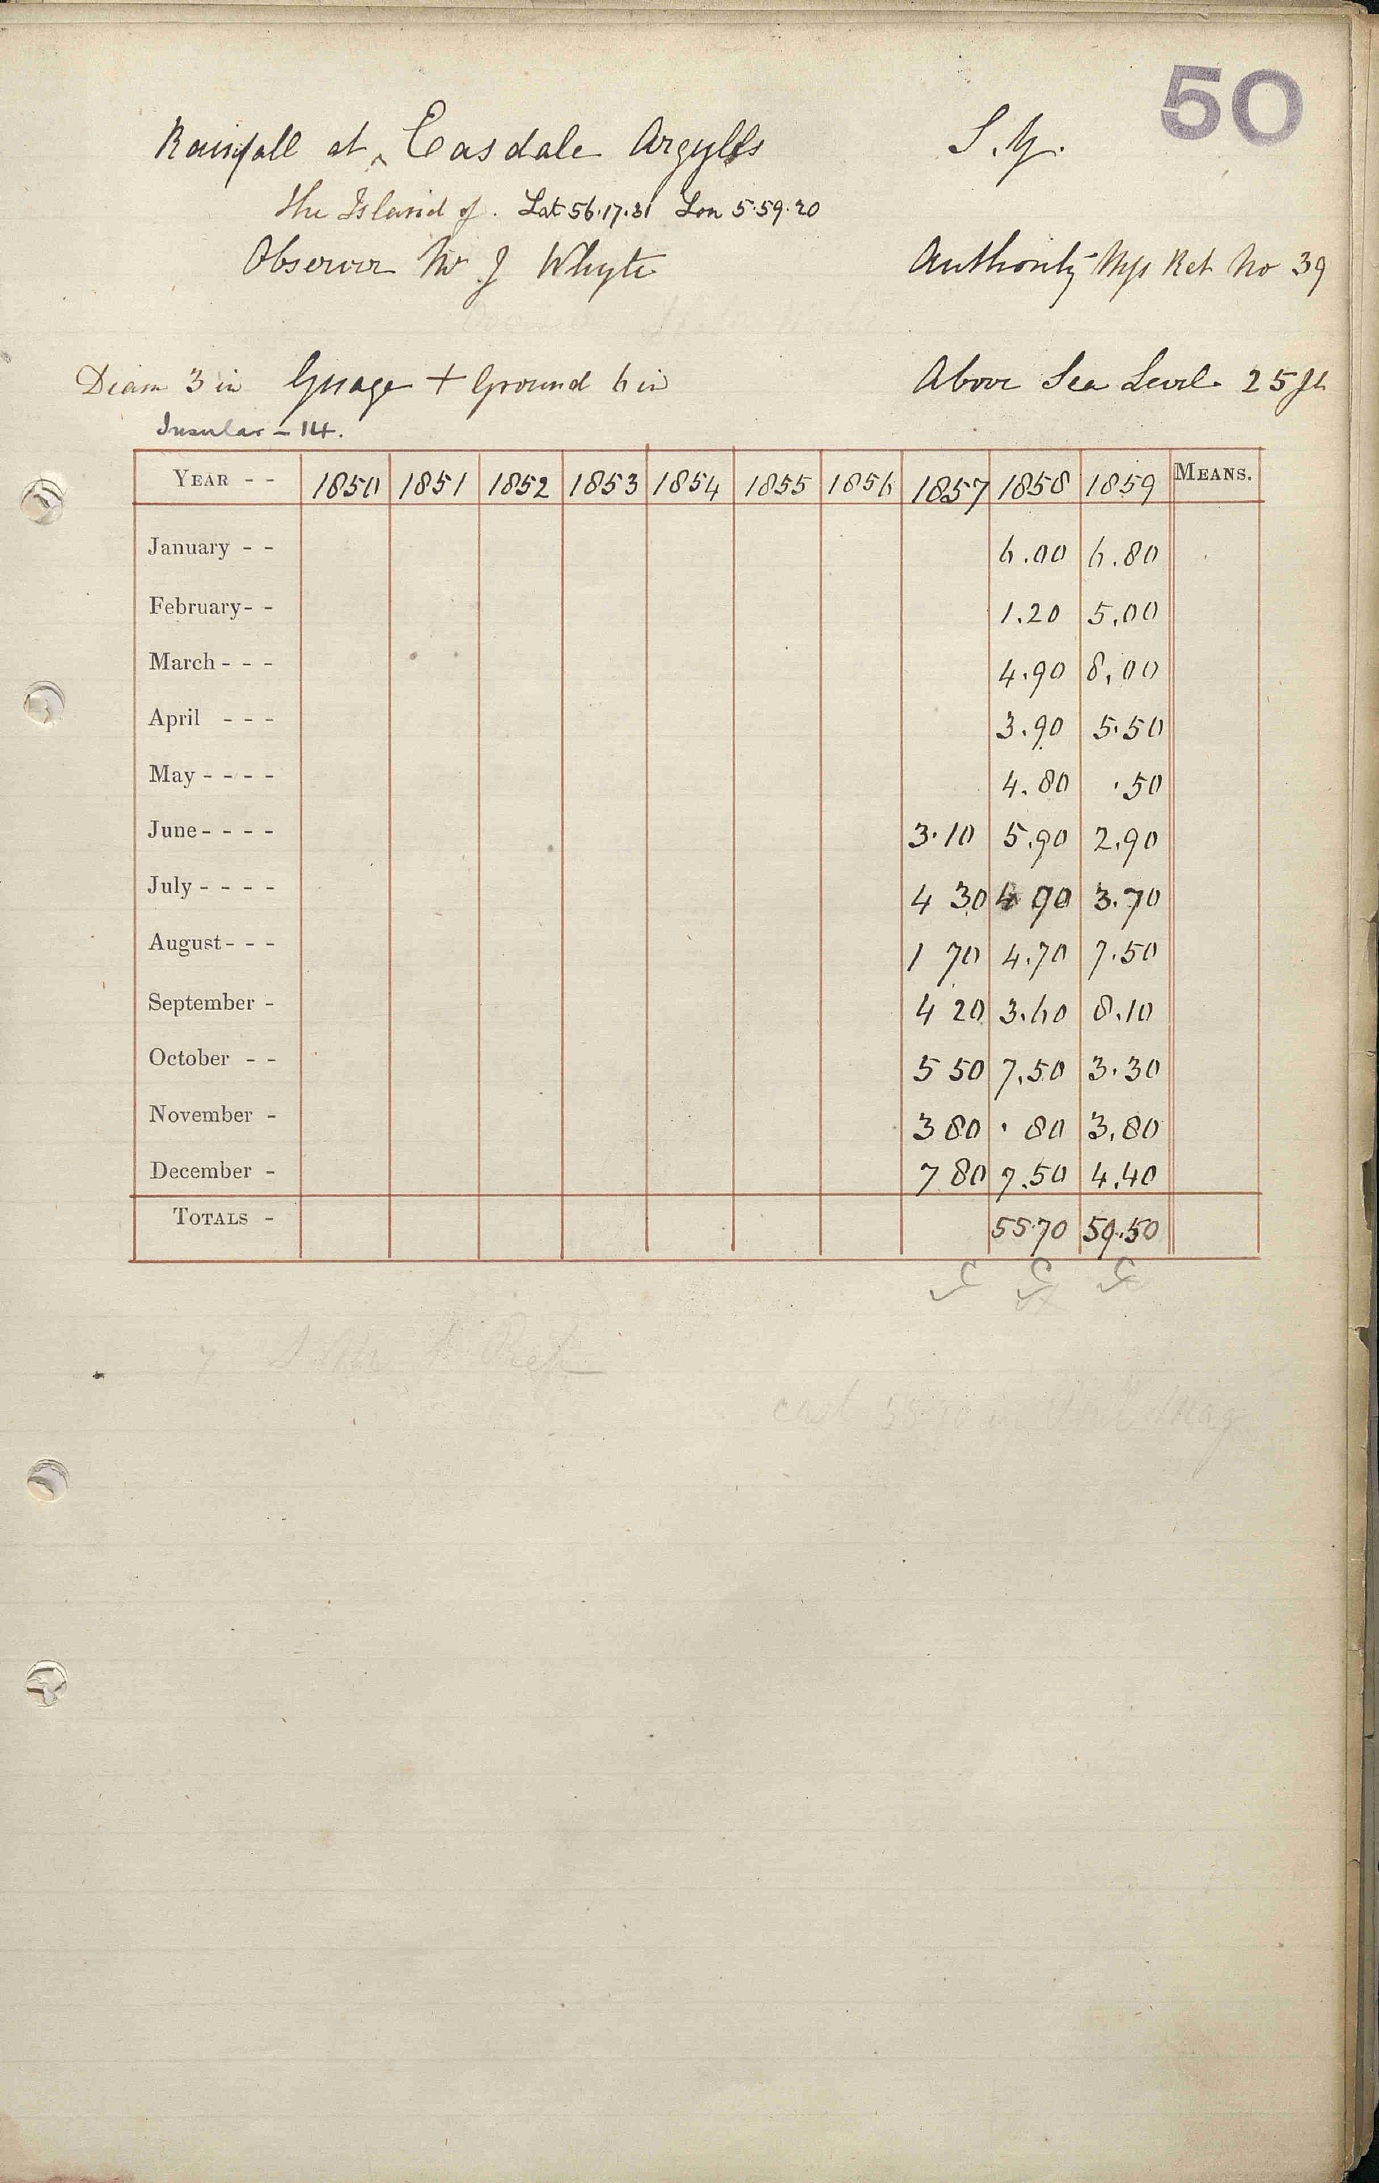 50
Rainfall at Easdale Argylls S.Y.
The Island of. Lat 56.17.31 Lon 5.59.20
Observer Mr J Whyte Authority Mss Ret No 39
Diam 3 in Guage + Ground 6 in Above Sea Level 25 ft
Insular - 14.
YEAR - - 1850 1851 1852 1853 1854 1855 1856 1857 1858 1859 MEANS.
January - - 6.00 6.80
February - - 1.20 5.00
March - - - 4.90 8.00
April - - - 3.90 5.50
May - - - - 4.80 .50
June - - - - 3.10 5.90 2.90
July - - - - 4 30 4 90 3.70
August - - - 1 70 4.70 7.50
September - 4 20 3.60 8.10
October - - 5 50 7.50 3.30
November - 3 80 . 80 3.80
December - 7 80 7.50 4.40
TOTALS - 55.70 59.50